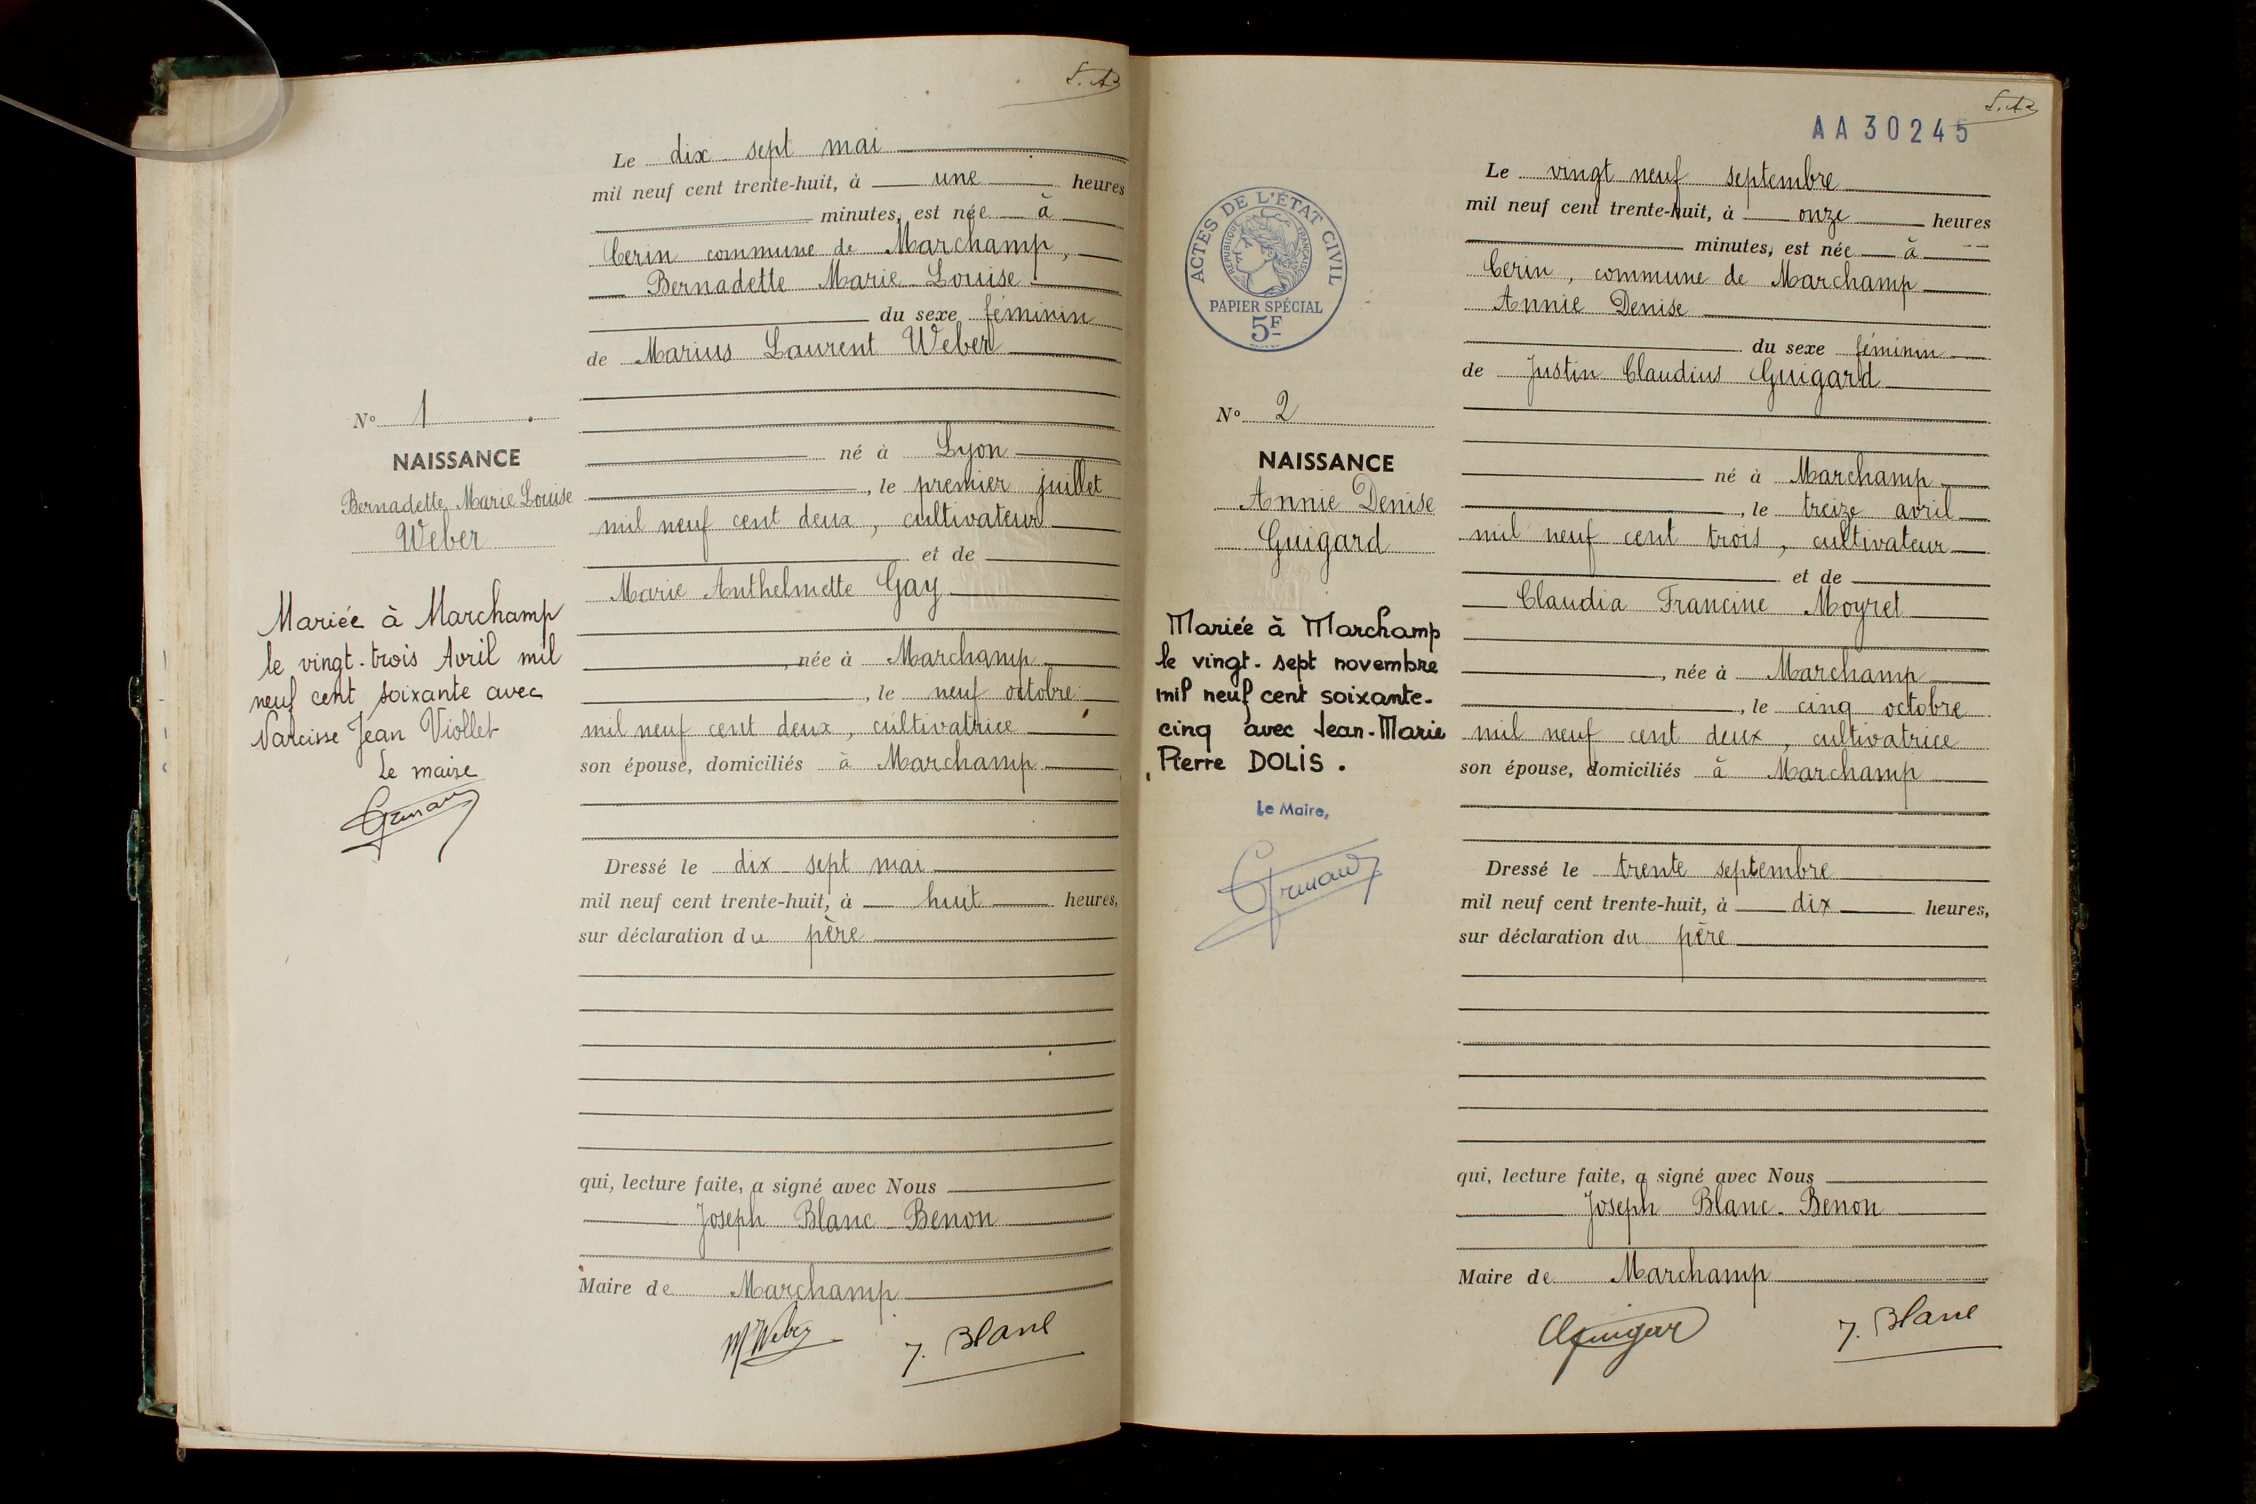 Le dix sept mai
mil neuf cent trente-huit, à une heures
minutes, est née à
Cerin commune de Marchamp,
Bernadette Marie Louise
du sexe féminin
de Marius Laurent Weber
né à Lyon
, le premier juillet
mil neuf cent deux, cultivateur
et de
Marie Anthelmette Gay
, née à Marchamp
, le neuf octobre
mil neuf cent deux, cultivatrice
son épouse, domiciliés à Marchamp
Dressé le dix sept mai
mil neuf cent trente-huit, à huit heures,
sur déclaration du père
qui, lecture faite, a signé avec Nous
Joseph Blanc-Benon
Maire de Marchamp
M Weber
J. Blanc
N° 1
NAISSANCE
Bernadette Marie Louise
Weber
Mariée à Marchamp
le vingt-trois Avril mil
neuf cent soixante avec
Narcisse Jean Viollet
Le maire
AA30245
Le vingt neuf septembre
mil neuf cent trente-huit, à onze heures
minutes, est née à
Cerin, commune de Marchamp
Annie Denise
du sexe féminin
de Justin Claudius Guigard
né à Marchamp
, le treize avril
mil neuf cent trois, cultivateur
et de
Claudia Francine Moyret
, née à Marchamp
, le cinq octobre
mil neuf cent deux, cultivatrice
son épouse, domiciliés à Marchamp
Dressé le trente septembre
mil neuf cent trente-huit, à dix heures,
sur déclaration du père
qui, lecture faite, a signé avec Nous
Joseph Blanc-Benon
Maire de Marchamp
J. Blanc
ACTES DE L'ÉTAT CIVIL
RÉPUBLIQUE FRANÇAISE
PAPIER SPÉCIAL
5F
N° 2
NAISSANCE
Annie Denise
Guigard
Mariée à Marchamp
le vingt-sept novembre
mil neuf cent soixante-
cinq avec Jean-Marie
Pierre DOLIS.
Le Maire,